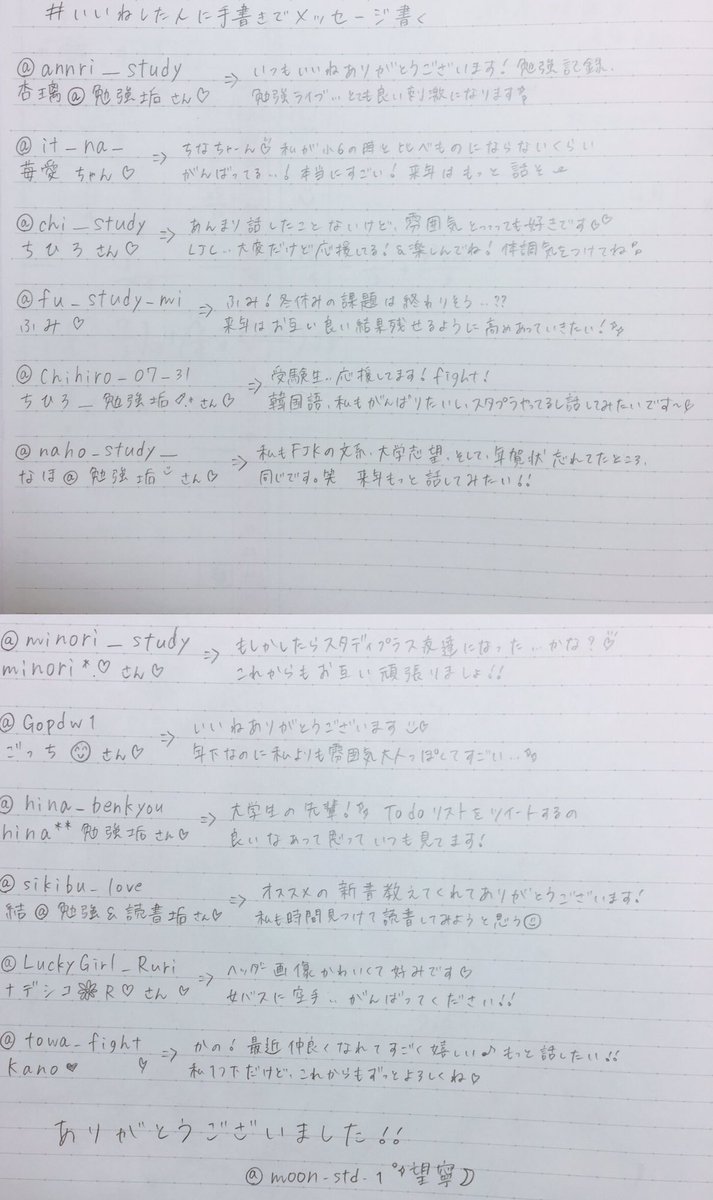 #いいねした人に手書きでメッセージ書く
@annri_study ⇒ いつもいいねありがとうございます!勉強記録、
杏璃@勉強垢さん♡ 勉強ライブ…とても良い刺激になります
@it_na_ ⇒ ちなちゃーん 私が小6の時と比べものにならないくらい
苺愛ちゃん♡ がんばってる..!本当にすごい!来年はもっと話そ
@chi_study ⇒ あんまり話したことないけど、雰囲気とってっても好きです♡♡
ちひろさん♡ LJC..大変だけど応援してる!&楽しんでね!体調気をつけてね
@fu_study_mi ⇒ ふみ!冬休みの課題は終わりそう..??
ふみ♡ 来年はお互い良い結果残せるように高めあっていきたい!
@chihiro_07_31 ⇒ 受験生..応援してます!fight!
ちひろ_勉強垢 さん♡ 韓国語、私もがんばりたいし、スタプラやってるし話してみたいです〜♡
@naho_study_ ⇒ 私もFJKの文系、大学志望、そして、年賀状忘れてたところ、
なほ@勉強垢 さん♡ 同じです。笑 来年もっと話してみたい!!
@minori_study ⇒ もしかしたらスタディプラス友達になった…かな?
minori*.♡さん♡ これからもお互い頑張りましょ!!
@Gopdw1 ⇒ いいねありがとうございます♡
ごっち☺さん♡ 年下なのに私よりも雰囲気大人っぽしてすごい..
@hina_benkyou ⇒ 大学生の先輩! Todoリストをツイートするの
hina**勉強垢さん♡ 良いなあって思っていつも見てます!
@sikibu_love ⇒ オススメの新書教えてくれてありがとうございます!
結@勉強&読書垢さん♡ 私も時間見つけて読書してみようと思う☺
@LuckyGirl_Ruri ⇒ ヘッダー画像かわいくて好みです♡
ナデシコ❀R♡さん♡ 女バスに空手..がんばってください!!
@towa_fight ⇒ かの!最近仲良くなれてすごく嬉しい♪もっと話したい!!
kano♥ ♡ 私1つ下だけど、これからもずっとよろしくね♡
ありがとうございました!!
@moon_std_1 望寧☽